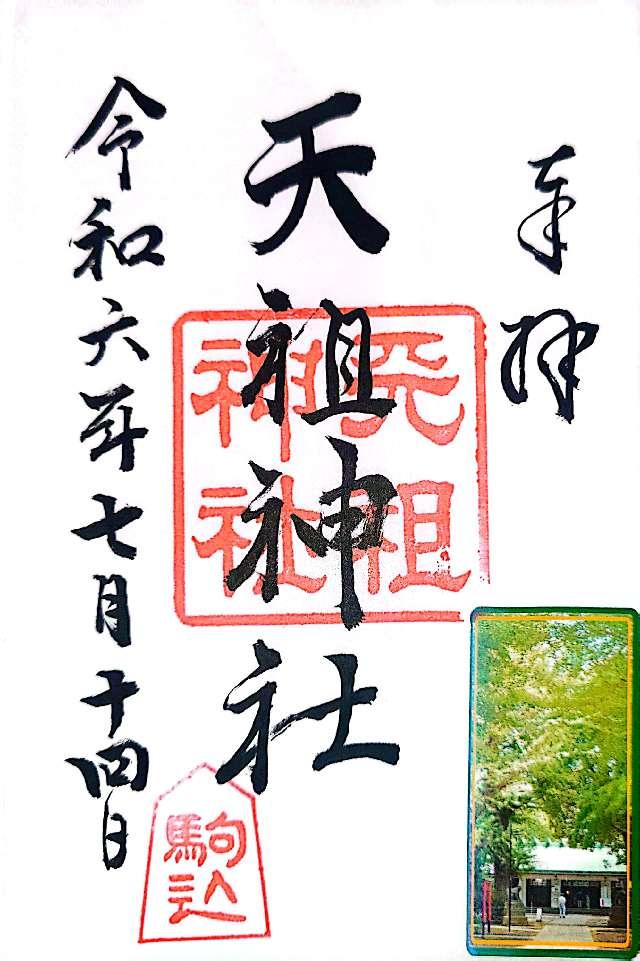 奉拝
天祖神社
天祖神社
令和六年七月十四日
駒込